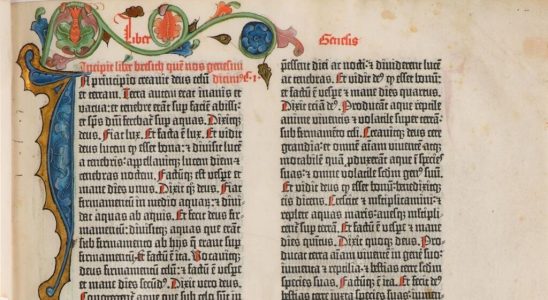 Liber
Genesis
Incipit liber bresith quē nos genesim
A principio creavit deus celū dicim⁹ c. 1
et terram. Terra autem erat inanis et
vacua: et tenebre erāt sup̄ faciē abissi:
et spūs dn̄i ferebat̄ sup̄ aquas. Dixitq̃
deus. Fiat lux. Et facta ē lux. Et vidit
deus lucem q̃ esset bona: et divisit lucē
a tenebris: appellavitq̃ lucem diem et
tenebras noctem. Factūq̃ est vespe et
mane dies unus. Dixit q̃ deus. Fiat
firmamentū in medio aquarū: et divi-
dat aquas ab aquis. Et fecit deus fir-
mamentū: divisitq̃ aquas que erāt
sub firmamento ab hijs q̃ erant sup̄
firmamentū: et factū ē ita. Vocavitq̃
deus firmamentū celū: et factū ē vespe
et mane dies secūd⁹. Dixit vero deus.
Congregent̄ aque que sub celo sūt in
pessent diei ac nocti: et dividerent lucē
ac tenebras. Et vidit de⁹ q̃ esset bonū:
et factū ē vespe et mane dies quartus.
Dixit eciā de⁹. Producant aque reptile
anime viventis et volatile super terrā:
sub firmamēto celi. Creavitq̃ deus cete
grandia: et omnē aīam viventē atq̃
motabilē quā p̄duxerāt aque ī species
suas: et omne volatile sedm gen⁹ suū.
Et vidit deus q̃ esset bonū: benedixitq̃
eis dicens. Crescite et m̄ltiplicamini: et
replete aquas maris: avesq̃ m̄ltipli-
cent̄ sup̄ terrā. Et factū ē vespe et mane
dies quītus. Dixit quoq̃ deus. Produ-
cat terra aīam viventē in genere suo:
iumenta et reptilia: et bestias terre sedm
species suas. Factūq̃ ē ita. Et fecit de⁹
bestias terre iuxta species suas: iumen-